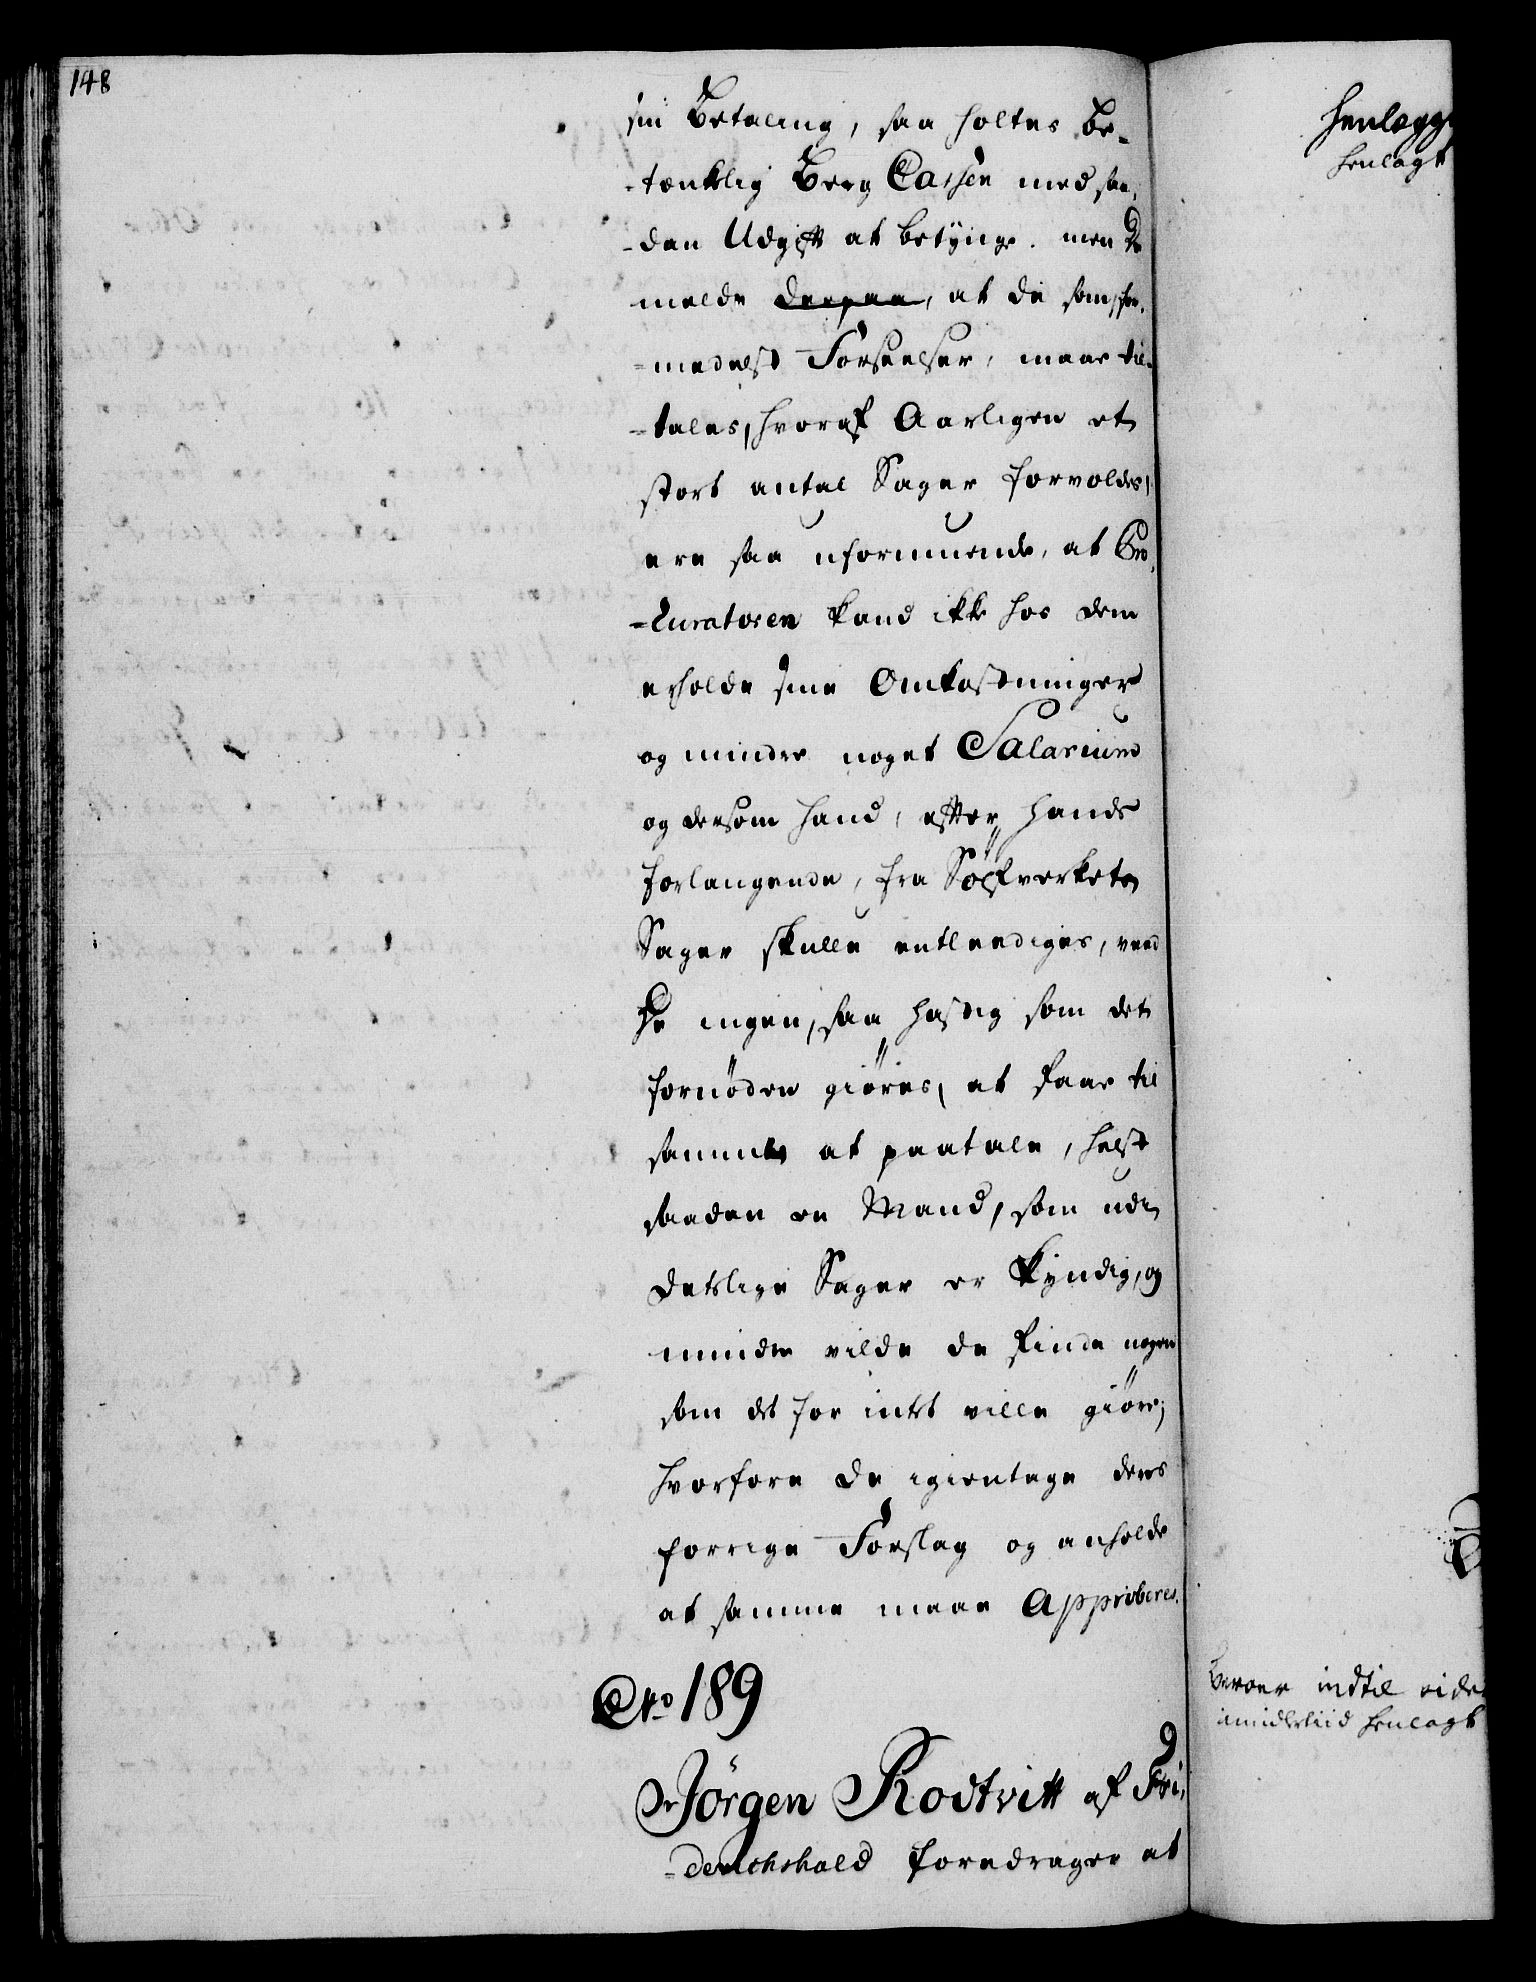 148
sin Betaling, saa holtes be-
-tænklig Berg Cassen med saa-
-dan Udgift at betynge. men De
melde derpaa, at de som for-
-medelst Forseelser, maae til-
-tales, hvoraf Aarligen et
stort antal Sager forvoldes,
ere saa uformuende, at Pro-
-curatoren kand ikke hos dem
erholde sine Omkostninger
og mindre noget Salarium
og dersom hand, efter hands
forlangende, fra Sølfverkets
Sager skulle entleediges, veed
De ingen, saa hastig som det
fornøden giøres, at faae til
samme at paatale, helst
saadan en Mand, som udi
Detslige Sager er Kyndig, og
mindre vilde de finde nogen
som det for intet ville giøre;
hvorfore De igientage deres
forrige Forslag og anholde
at samme maae Approberes.
No 189
Jörgen Rodtvitt af Fri-
-derichshald foredrager at
henlægg
henlagt
Beroer indtil vide
imidlertiid henlagt